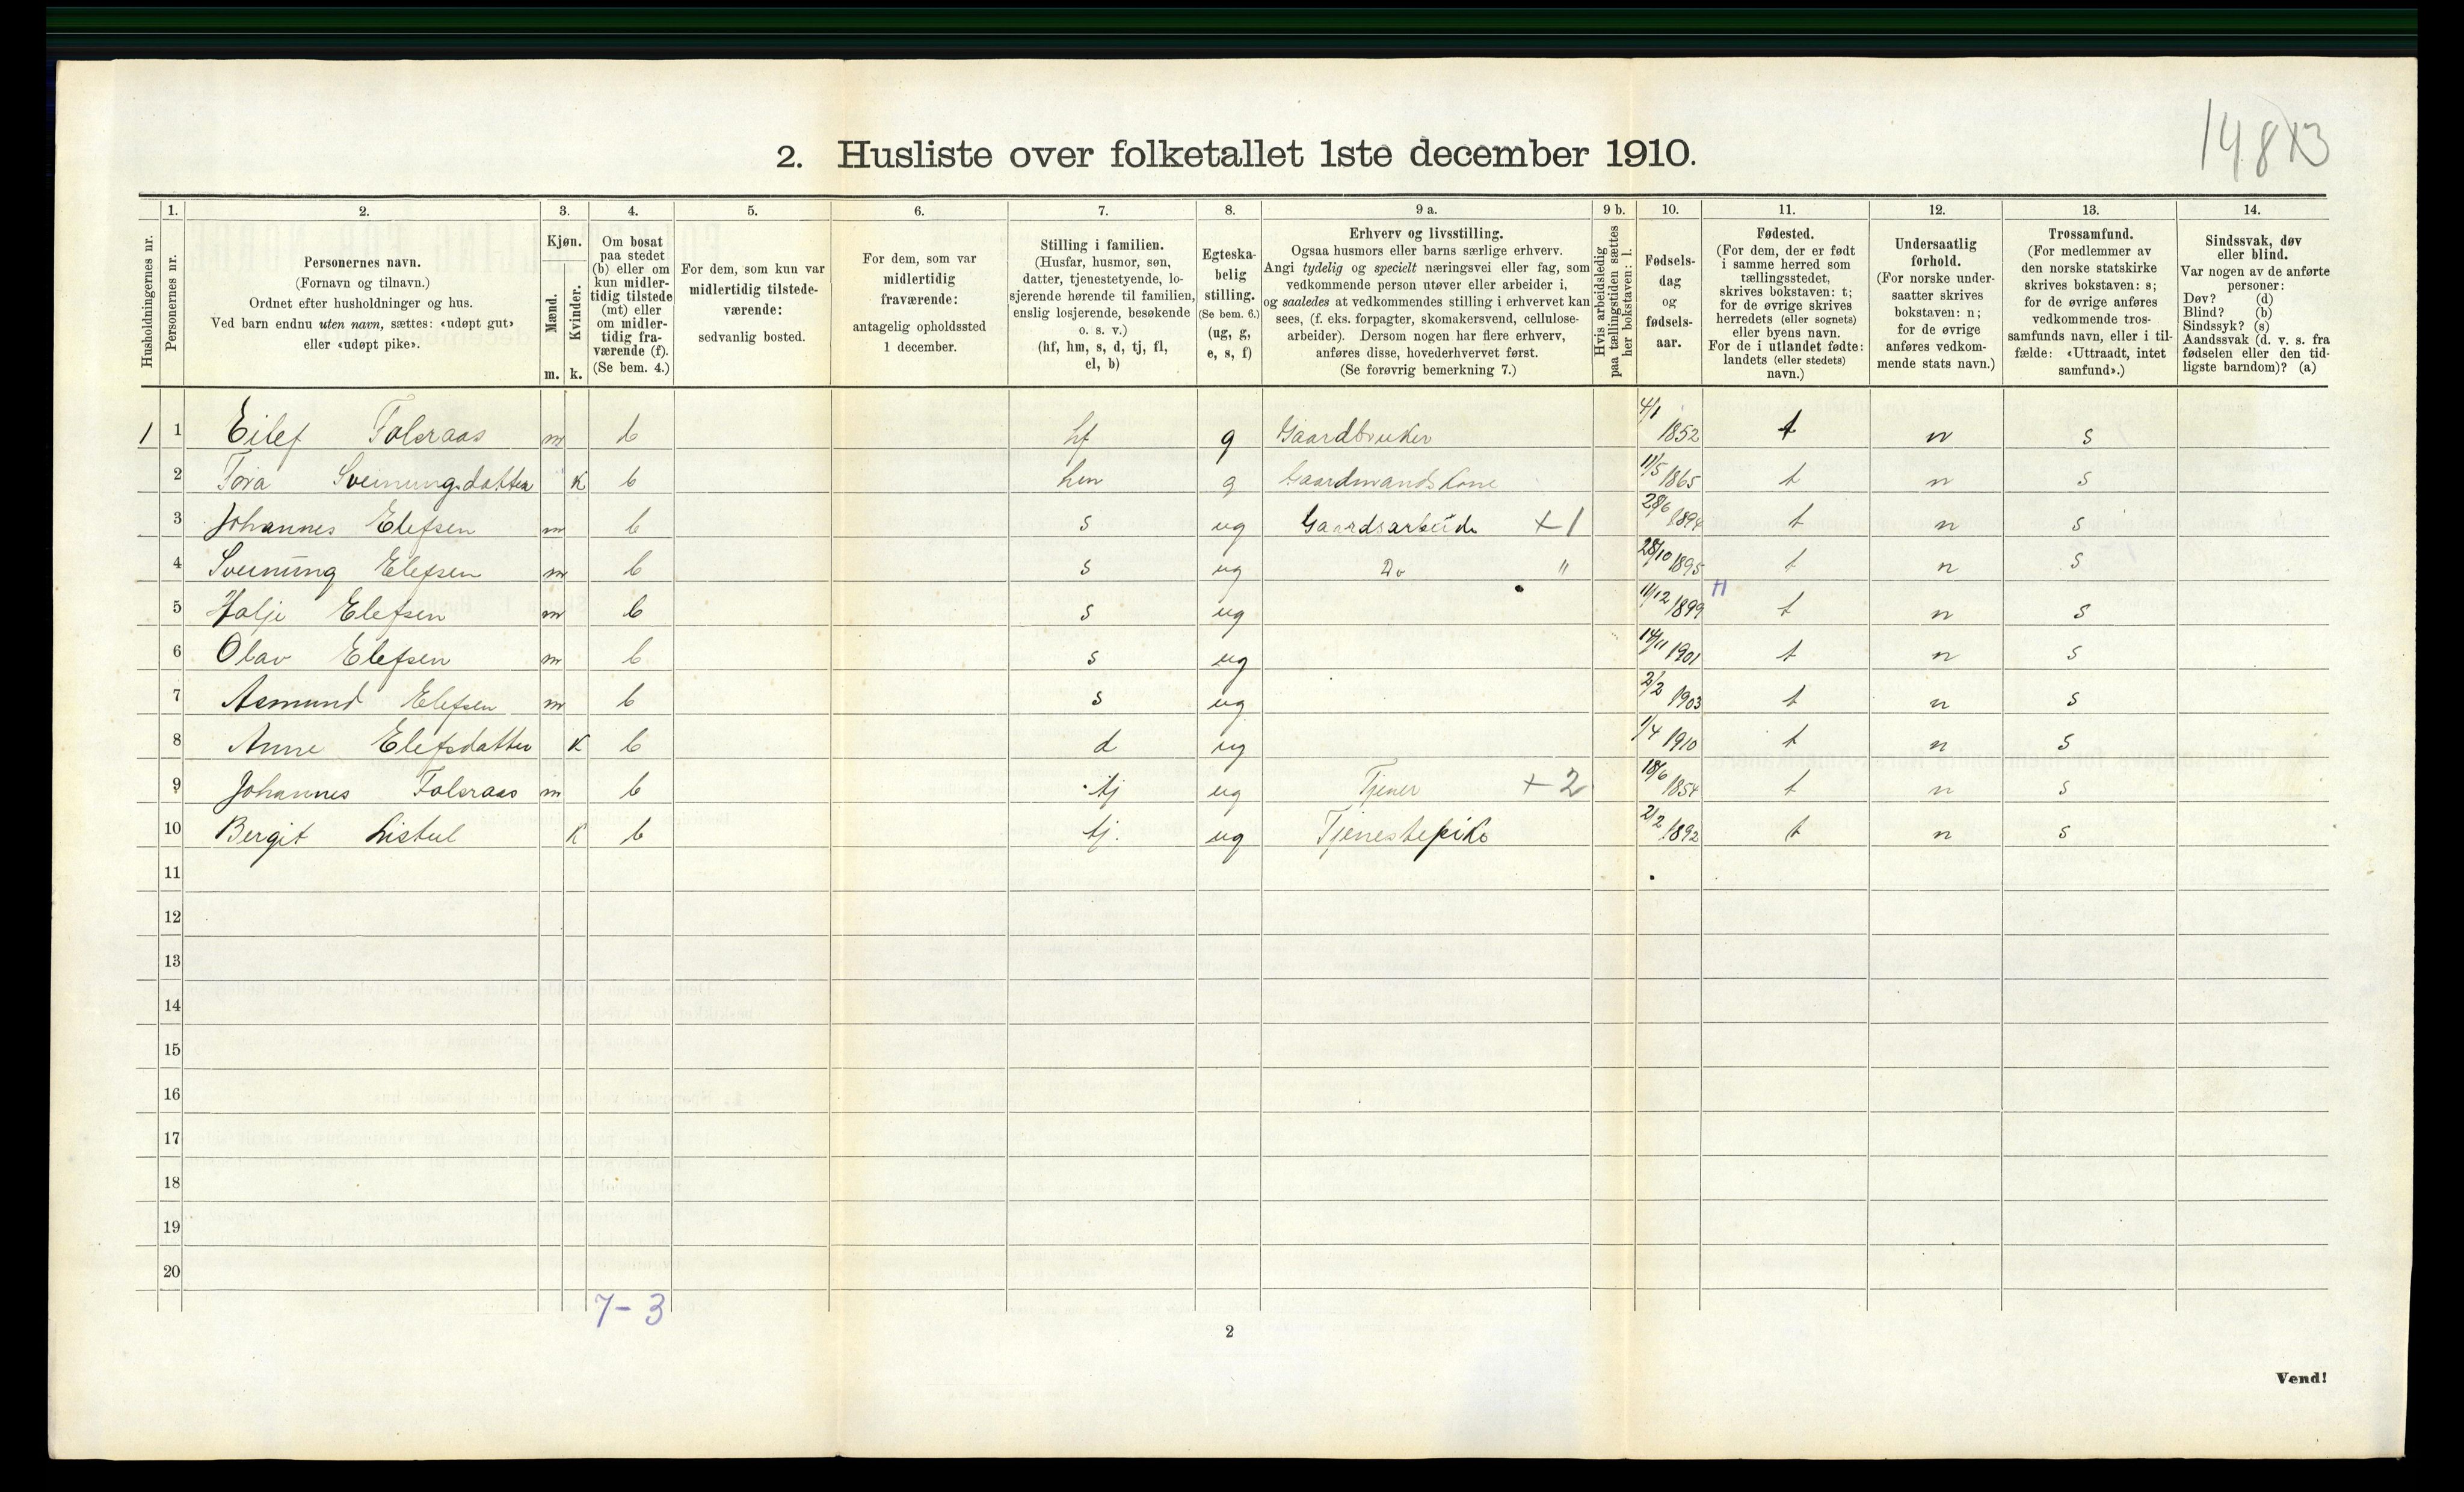 14813
2. Husliste over folketallet 1ste december 1910.
Husholdningernes nr.
1.
Personernes nr.
2.
Personernes navn.
(Fornavn og tilnavn.)
Ordnet efter husholdninger og hus.
Ved barn endnu uten navn, sættes: «udøpt gut»
eller «udøpt pike».
3.
Kjøn.
Mænd.
Kvinder.
m. k.
4.
Om bosat
paa stedet
(b) eller om
kun midler-
tidig tilstede
(mt) eller
om midler-
tidig fra-
værende (f).
(Se bem. 4.)
5.
For dem, som kun var
midlertidig tilstede-
værende:
sedvanlig bosted.
6.
For dem, som var
midlertidig
fraværende:
antagelig opholdssted
1 december.
7.
Stilling i familien.
(Husfar, husmor, søn,
datter, tjenestetyende, lo-
sjerende hørende til familien,
enslig losjerende, besøkende
o. s. v.)
(hf, hm, s, d, tj, fl,
el, b)
8.
Egteska-
belig
stilling.
(Se bem. 6.)
(ug, g,
e, s, f)
9 a.
Erhverv og livsstilling.
Ogsaa husmors eller barns særlige erhverv.
Angi tydelig og specielt næringsvei eller fag, som
vedkommende person utøver eller arbeider i,
og saaledes at vedkommendes stilling i erhvervet kan
sees, (f. eks. forpagter, skomakersvend, cellulose-
arbeider). Dersom nogen har flere erhverv,
anføres disse, hovederhvervet først.
(Se forøvrig bemerkning 7.)
9 b.
Hvis arbeidsledig
paa tællingstiden sættes
her bokstaven: l.
10.
Fødsels-
dag
og
fødsels-
aar.
11.
Fødested.
(For dem, der er født
i samme herred som
tællingsstedet,
skrives bokstaven: t;
for de øvrige skrives
herredets (eller sognets)
eller byens navn.
For de i utlandet fødte:
landets (eller stedets)
navn.)
12.
Undersaatlig
forhold.
(For norske under-
saatter skrives
bokstaven: n;
for de øvrige
anføres vedkom-
mende stats navn.)
13.
Trossamfund.
(For medlemmer av
den norske statskirke
skrives bokstaven: s;
for de øvrige anføres
vedkommende tros-
samfunds navn, eller i til-
fælde: «Uttraadt, intet
samfund».)
14.
Sindssvak, døv
eller blind.
Var nogen av de anførte
personer:
Døv? (d)
Blind? (b)
Sindssyk? (s)
Aandssvak (d. v. s. fra
fødselen eller den tid-
ligste barndom)? (a)
1 1 Eilef Folsraas m b hf g Gaardbruker 4/1 1852 t n s
2 Tora Sveinungsdatter k b hm g Gaardmandskone 11/5 1865 t n s
3 Johannes Elefsen m b s ug Gaardsarbeide +1 28/6 1894 t n s
4 Sveinung Elefsen m b s ug Do " 28/10 1895 t n s
5 Halje Elefsen m b s ug 11/12 1899 H t n s
6 Olav Elefsen m b s ug 14/11 1901 t n s
7 Asmund Elefsen m b s ug 2/2 1903 t n s
8 Anne Elefsdatter k b d ug 1/4 1910 t n s
9 Johannes Folsraas m b tj ug Tjener +2 18/6 1854 t n s
10 Bergit Listul k b tj. ug Tjenestepike 2/2 1892 t n s
11
12
13
14
15
16
17
18
19
20
7-3
2
Vend!